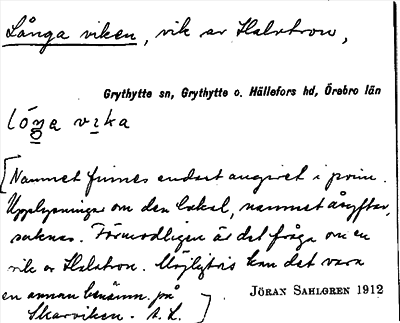 Långa viken, vik av Halvtron,
Grythytte sn, Grythytte o. Hällefors hd, Örebro län
lóŋa vıka
[Namnet finnes endast angivet i prim.
Upplysningar om den lokal, namnet åsyftar,
saknas. Förmodligen är det fråga om en
vik av Halvtron. Möjligtvis kan det vara
en annan benämn. på
Skarviken. A. L.]
JÖRAN SAHLGREN 1912